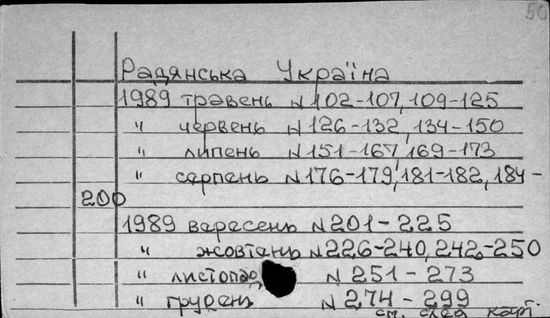 50
Радянська Україна
1989 травень N 102-107, 109-125
" червень N 126-132, 134-150
" липень N 151-167, 169-173
" серпень N 176-179, 181-182, 184-
200
1989 варасень N 201-225
" жовтань N 226-240, 242-250
" листопад N 251-273
" грудень N 274-299
см. след карт.